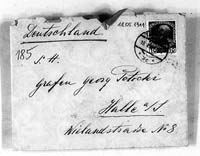 Deutschland
18.XII.1911
185
S. H.
grafen georg Potocki
Halle a/S
Wielandstraße No 8